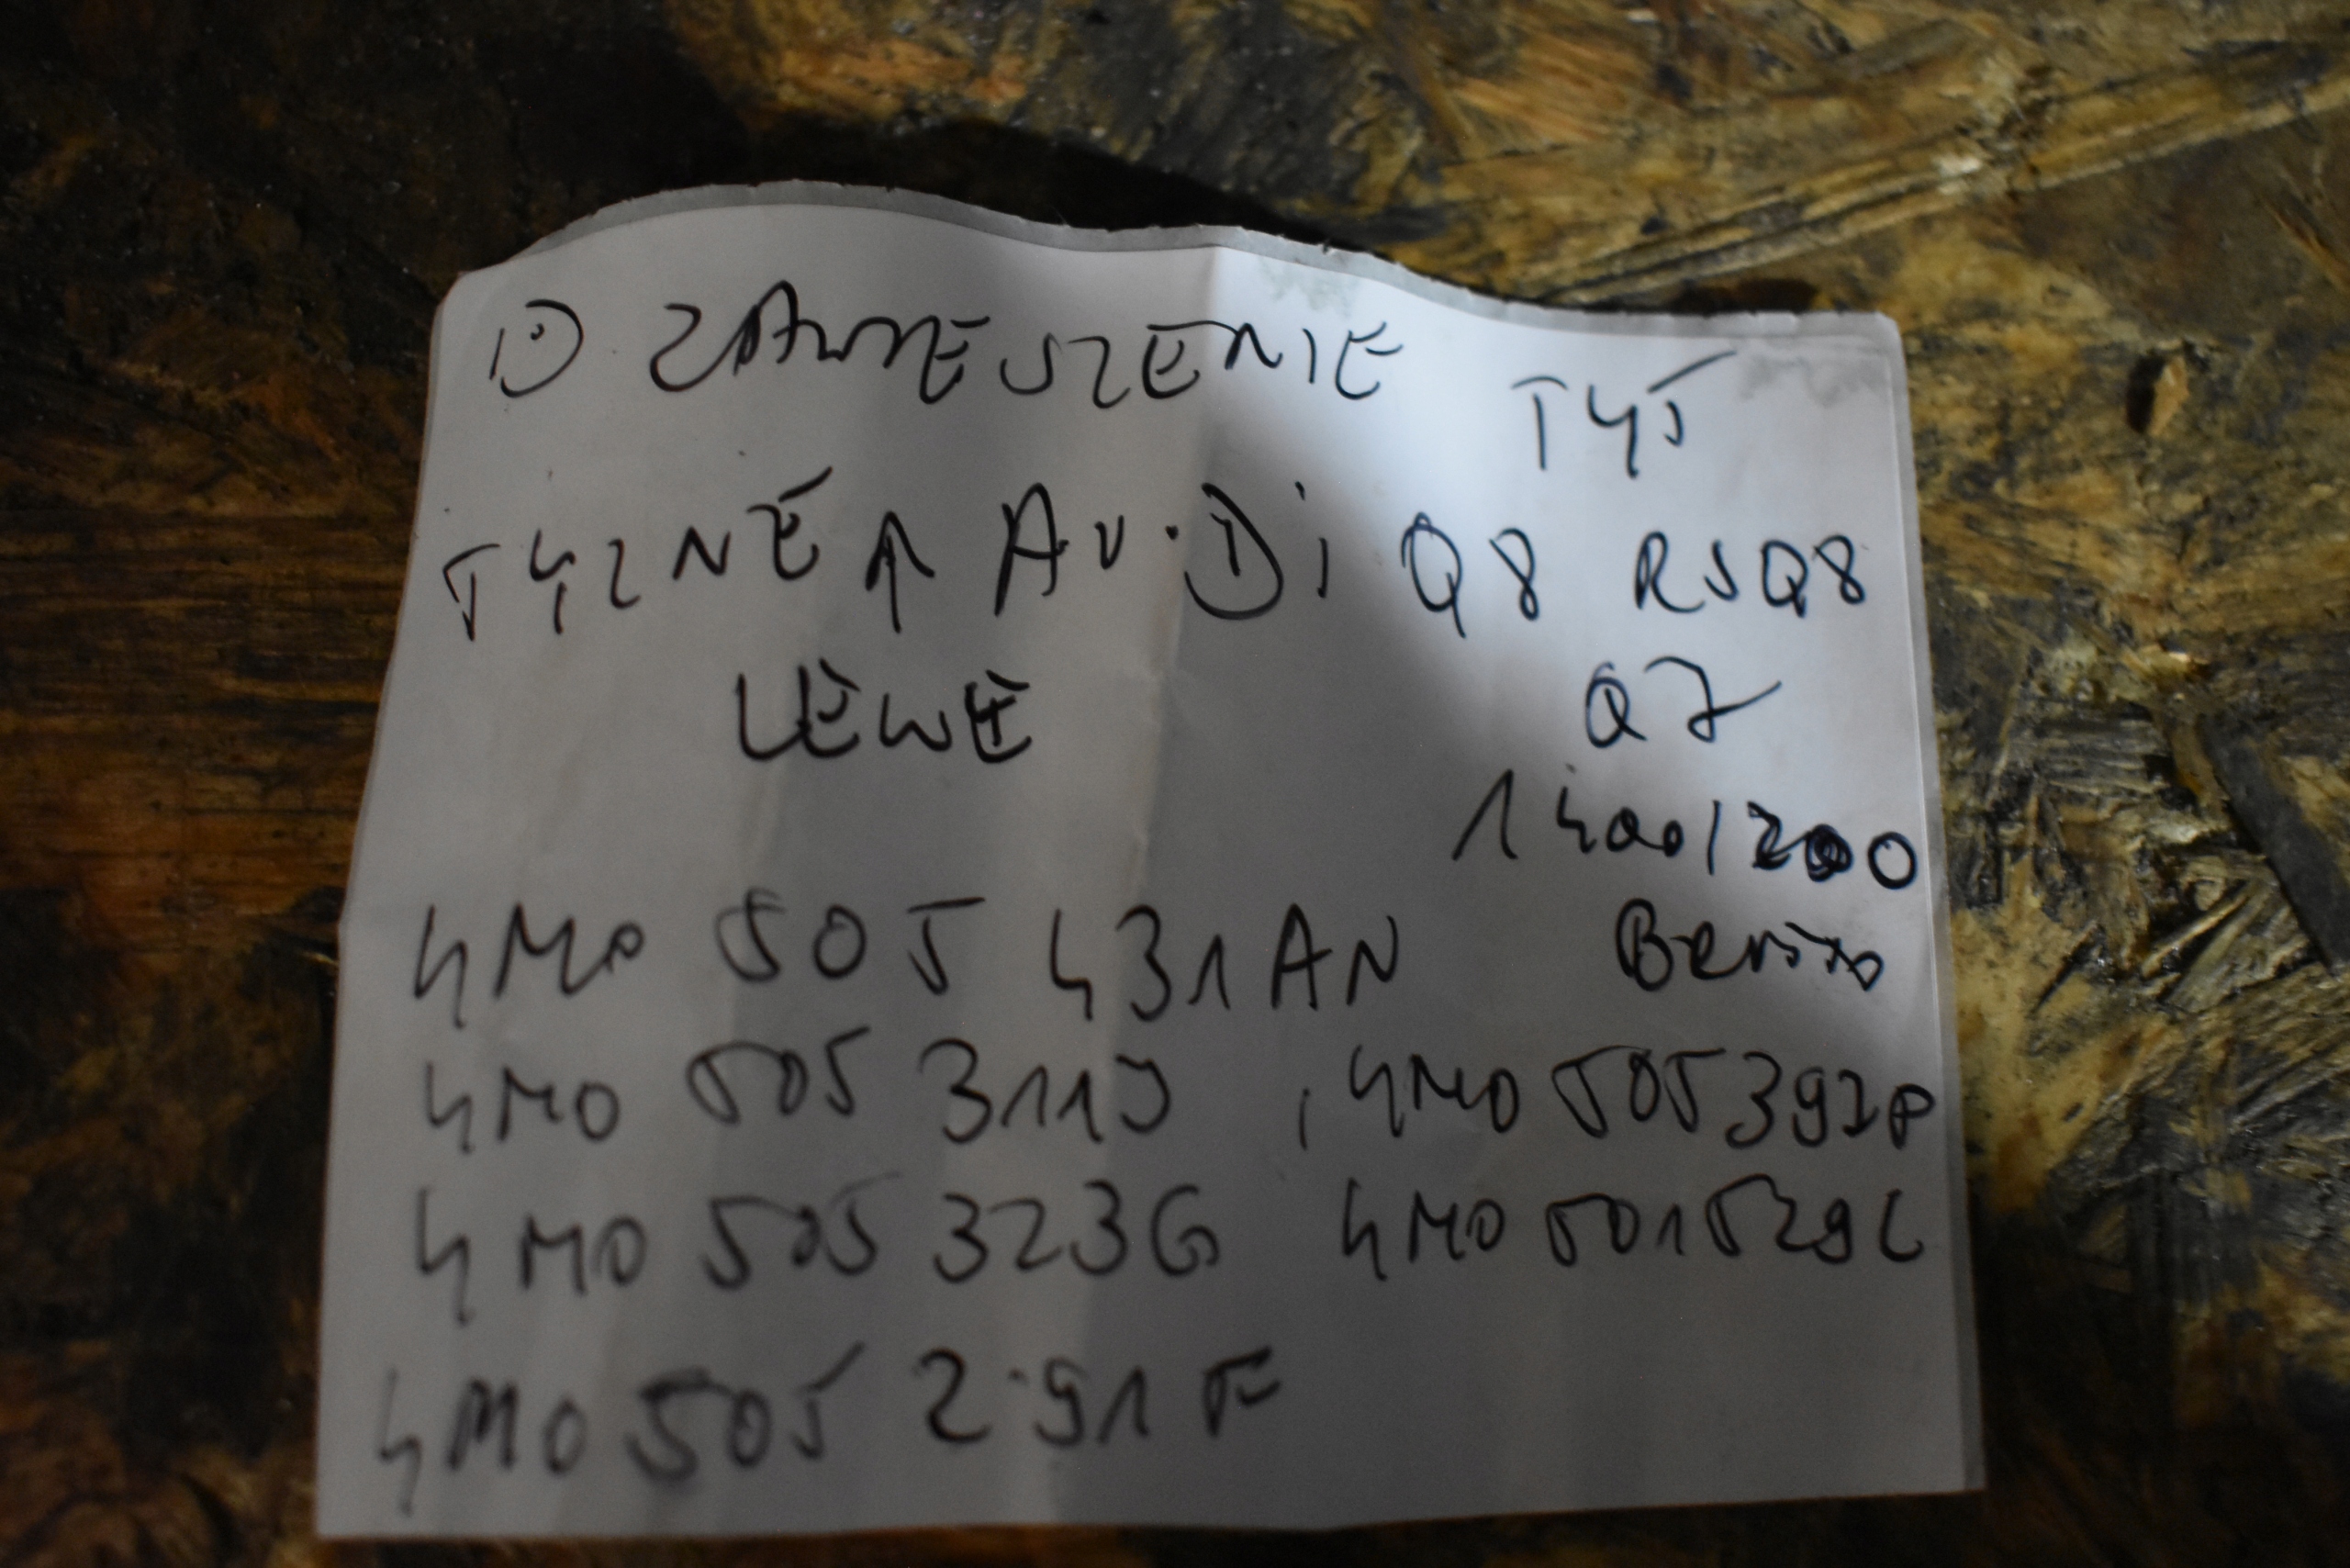 1) ZAWIESZENIE TYŁ
TYLNE ↑ AUDI Q8 RSQ8
LEWE Q7
1400/200
4M0 505 431AN
4M0 505 311J , 4M0 505 392P
4M0 505 323G 4M0 501529C
4M0 505 291F